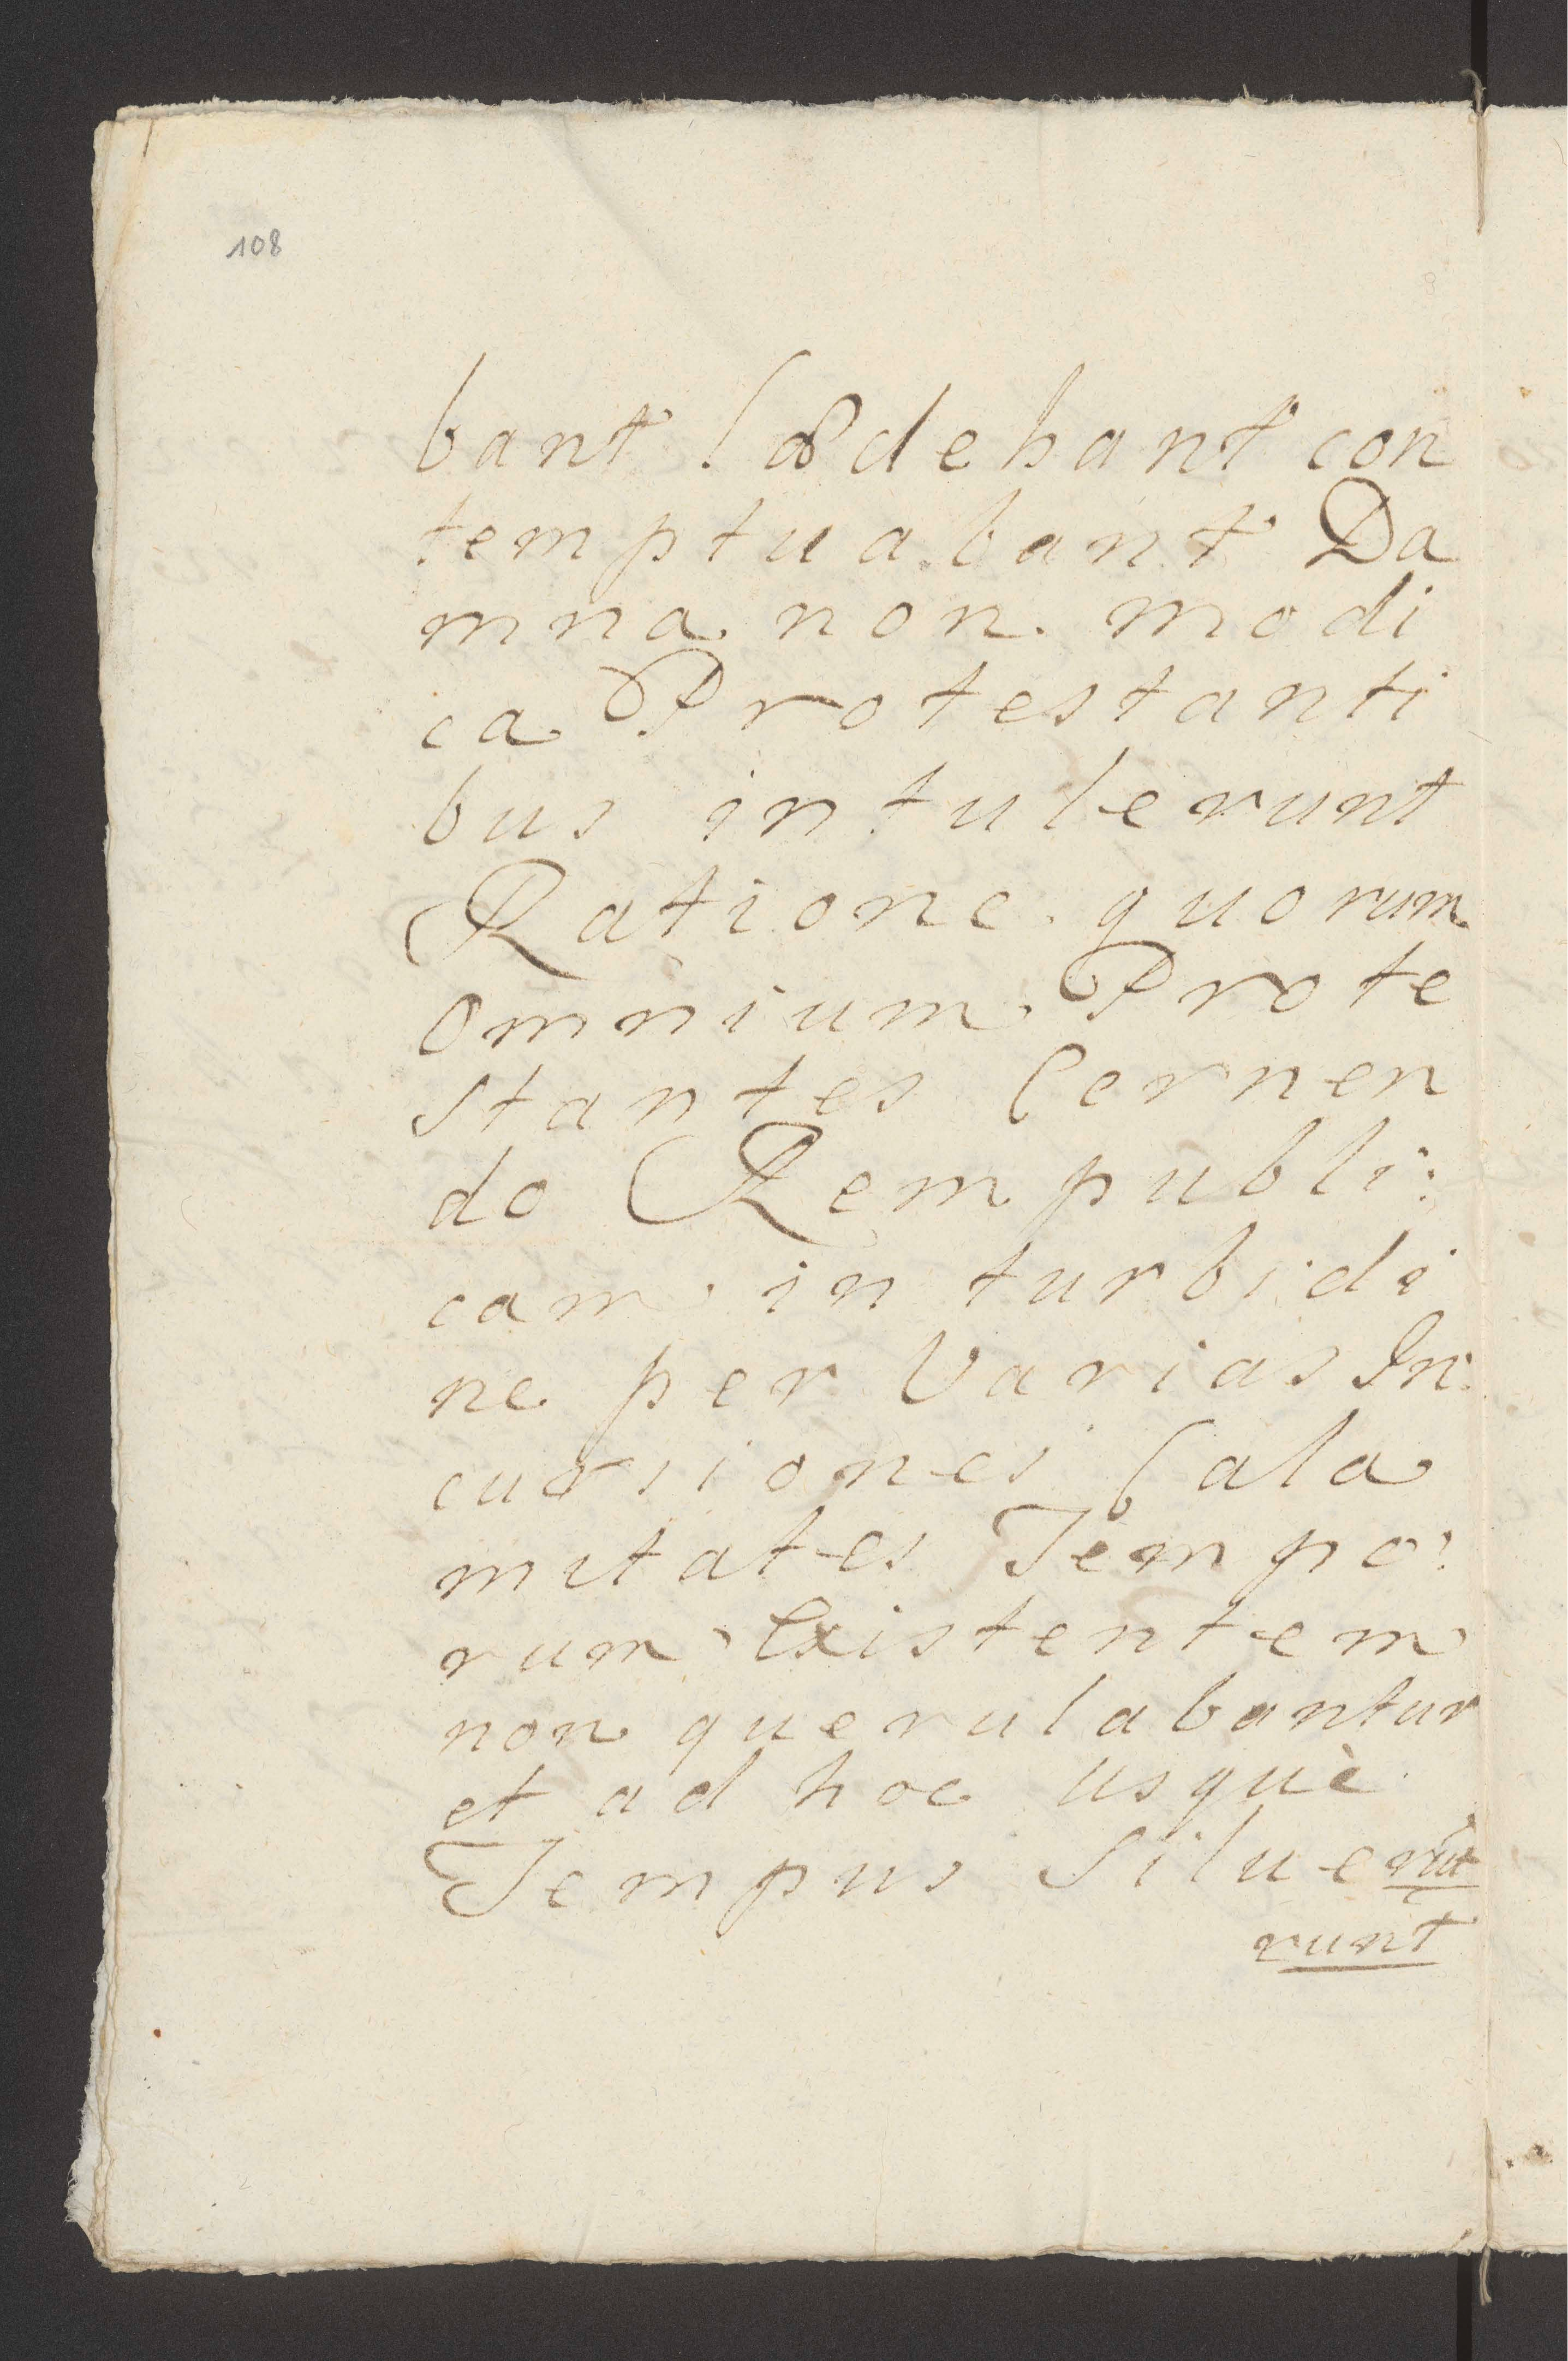 108
bant lædebant con
temptuabant Da
mna non modi
ca Protestanti
bus intulerunt
Ratione quorum
omnium Prote
stantes Cernen
do Rempubli:
cam in turbidi
ne per Varias In
cursiones Cala
mitates Tempo:
rum Existentem
non querulabantur
et ad hoc usquè
Tempus Siluerūt
runt